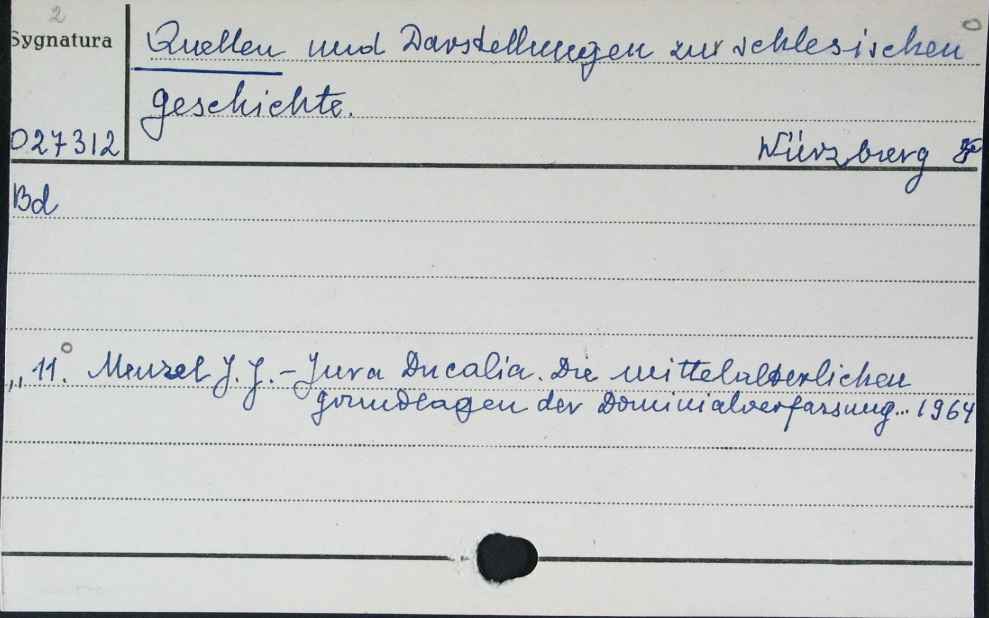 2
Sygnatura
Quellen und Darstellungen zur schlesischen
geschichte.
027312
Würzburg
Bd
„ 11. Menzel J. J. - Jura Ducalia. Die mittelalterlichen
grundlagen der Dominialverfassung... 1964